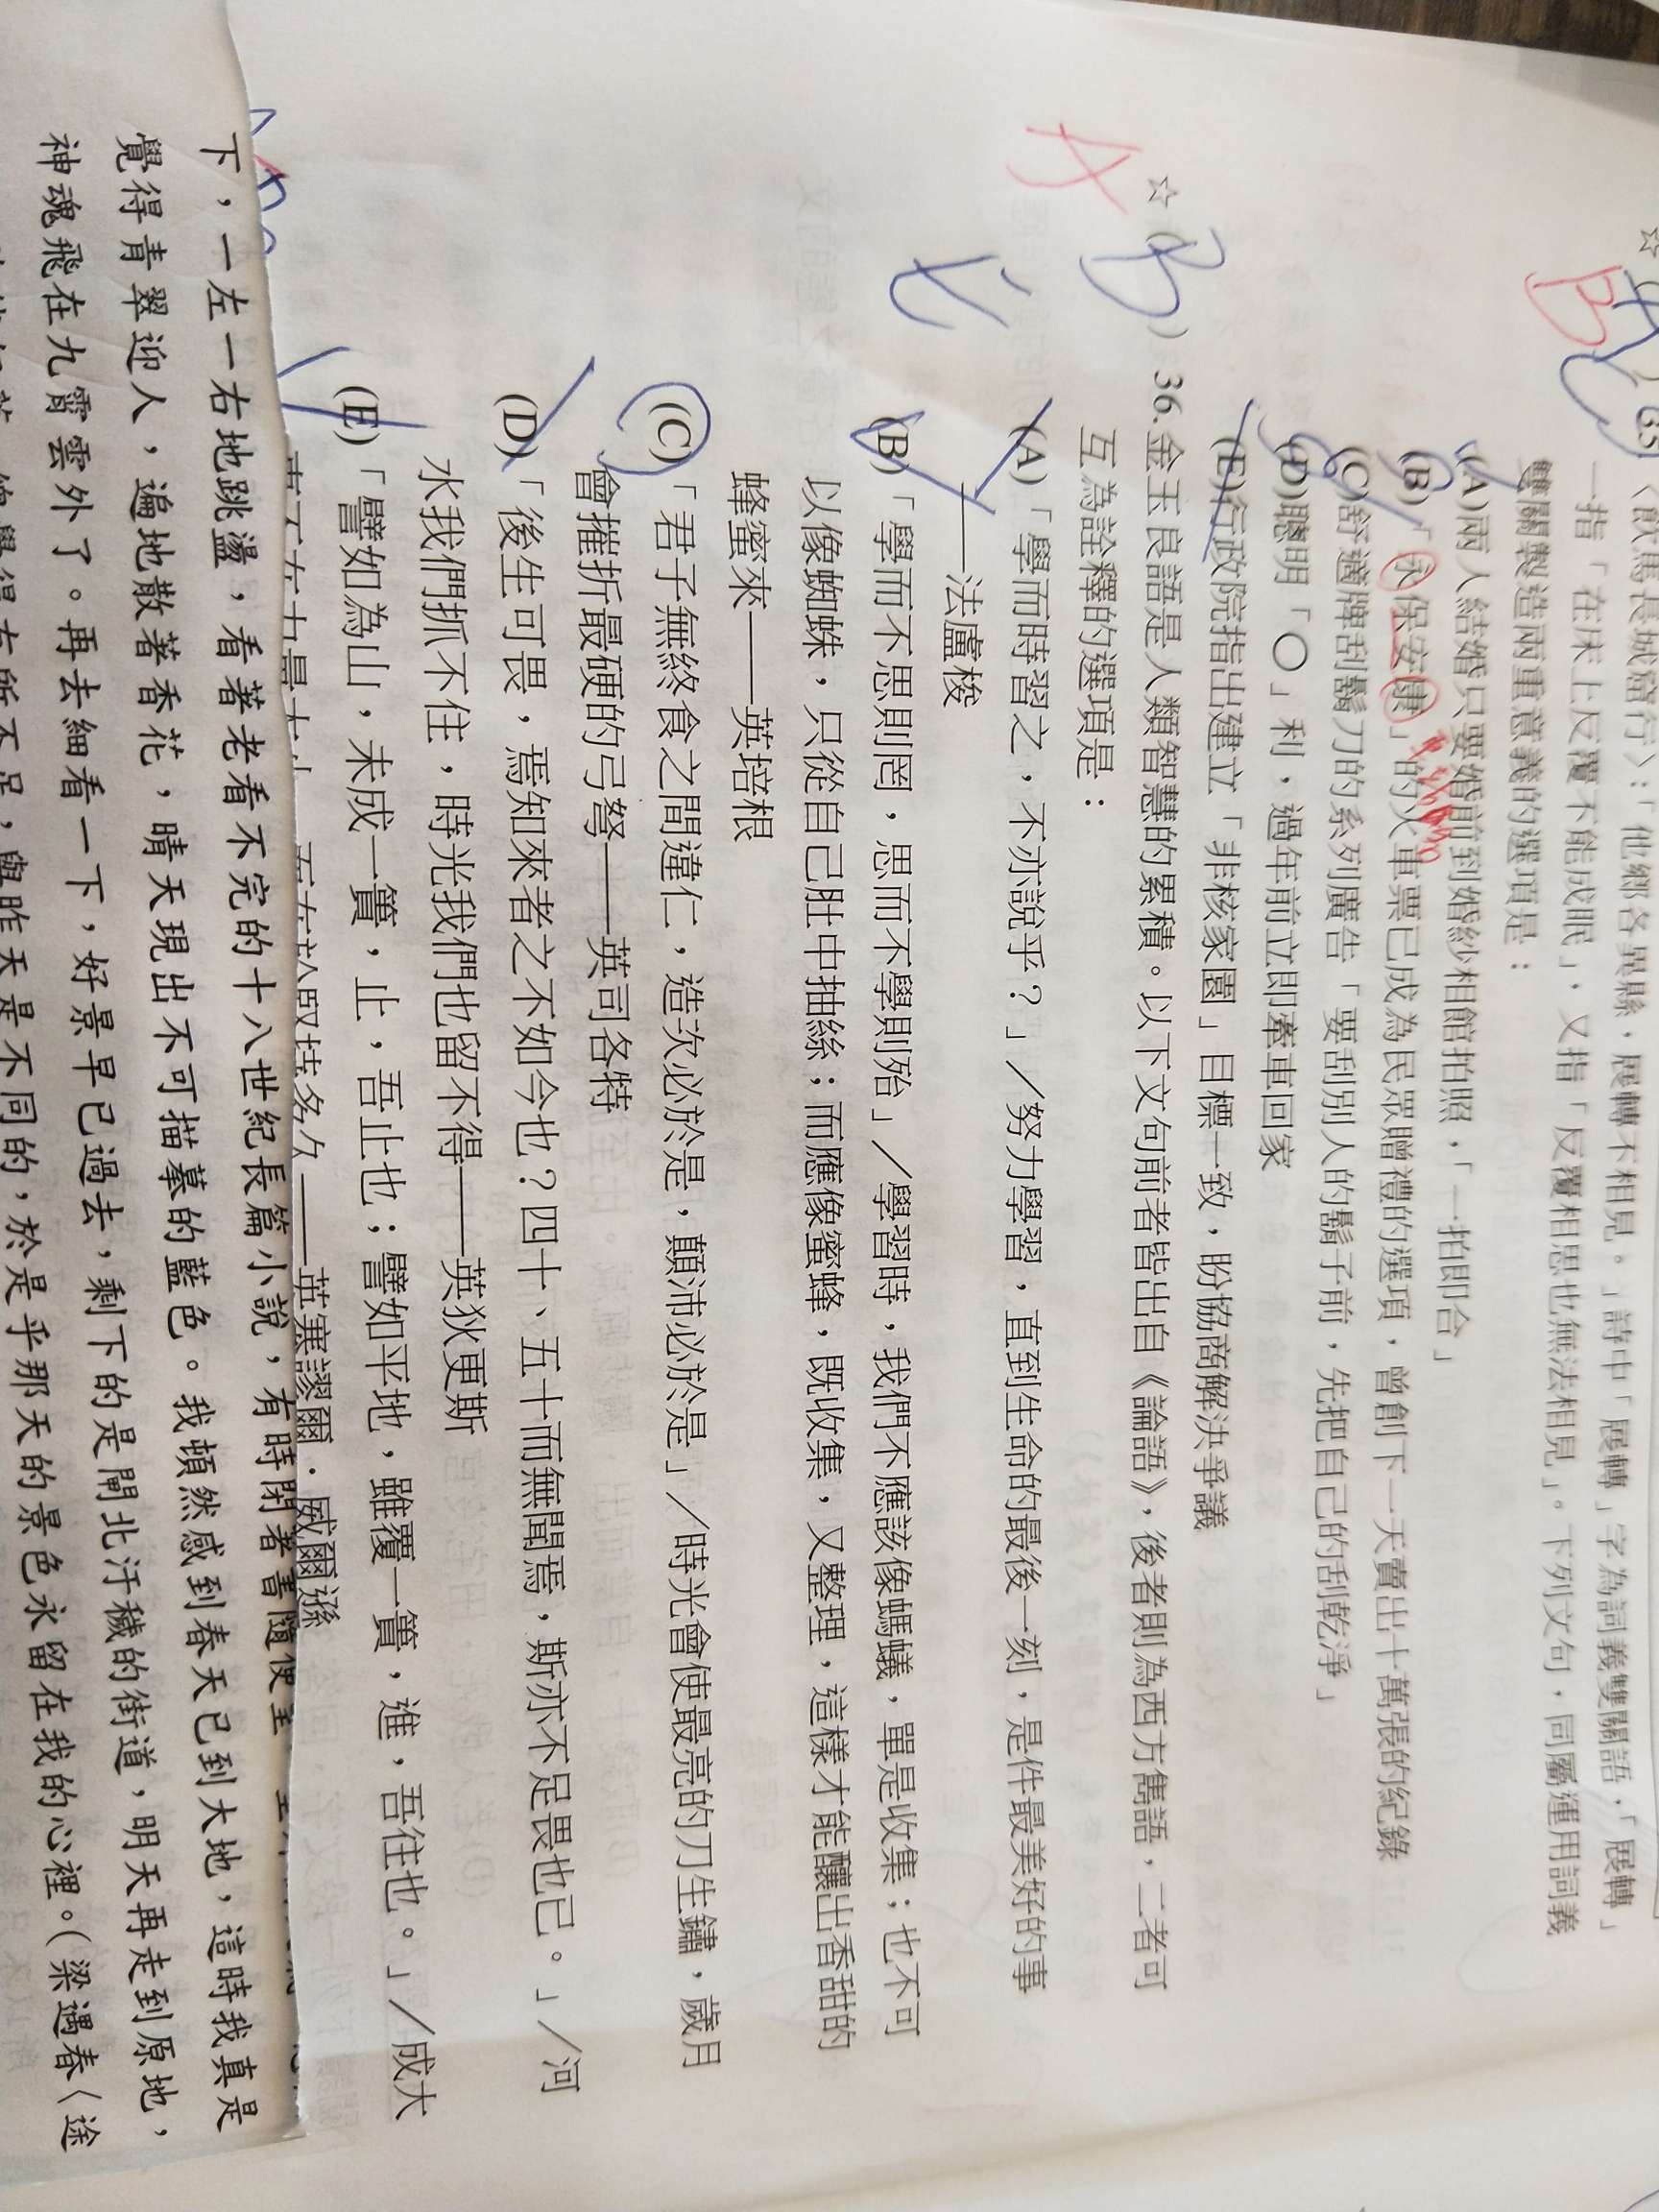 35.〈飲馬長城窟行〉:「他鄉各異縣,展轉不相見。」詩中「展轉」字為詞義雙關語,「展轉」
一指「在床上反覆不能成眠」,又指「反覆相思也無法相見」。下列文句,同屬運用詞義
雙關製造兩重意義的選項是:
(A)兩人結婚只要婚前到婚紗相館拍照,「一拍即合」
(B)「永保安康」的火車票已成為民眾贈禮的選項,曾創下一天賣出十萬張的紀錄
(C)舒適牌刮鬍刀的系列廣告「要刮別人的鬍子前,先把自己的刮乾淨」
(D)聰明「〇」利,過年前立即牽車回家
(E)行政院指出建立「非核家園」目標一致,盼協商解決爭議
☆(B)36.金玉良語是人類智慧的累積。以下文句前者皆出自《論語》,後者則為西方雋語,二者可
互為詮釋的選項是:
(A)「學而時習之,不亦說乎?」/努力學習,直到生命的最後一刻,是件最美好的事
——法盧梭
(B)「學而不思則罔,思而不學則殆」/學習時,我們不應該像螞蟻,單是收集;也不可
以像蜘蛛,只從自己肚中抽絲;而應像蜜蜂,既收集,又整理,這樣才能釀出香甜的
蜂蜜來——英培根
(C)「君子無終食之間違仁,造次必於是,顛沛必於是」/時光會使最亮的刀生鏽,歲月
會摧折最硬的弓弩——英司各特
(D)「後生可畏,焉知來者之不如今也?四十、五十而無聞焉,斯亦不足畏也已。」/河
水我們抓不住,時光我們也留不得——英狄更斯
(E)「譬如為山,未成一簣,止,吾止也;譬如平地,雖覆一簣,進,吾往也。」/成大
——英塞謬爾.威爾遜
下,一左一右地跳盪,看著老看不完的十八世紀長篇小說,有時閉著書隨便
覺得青翠迎人,遍地散著香花,晴天現出不可描摹的藍色。我頓然感到春天已到大地,這時我真是
神魂飛在九霄雲外了。再去細看一下,好景早已過去,剩下的是閘北汙穢的街道,明天再走到原地,
總覺得有所不足,與昨天是不同的,於是乎那天的景色永留在我的心裡。(梁遇春〈途